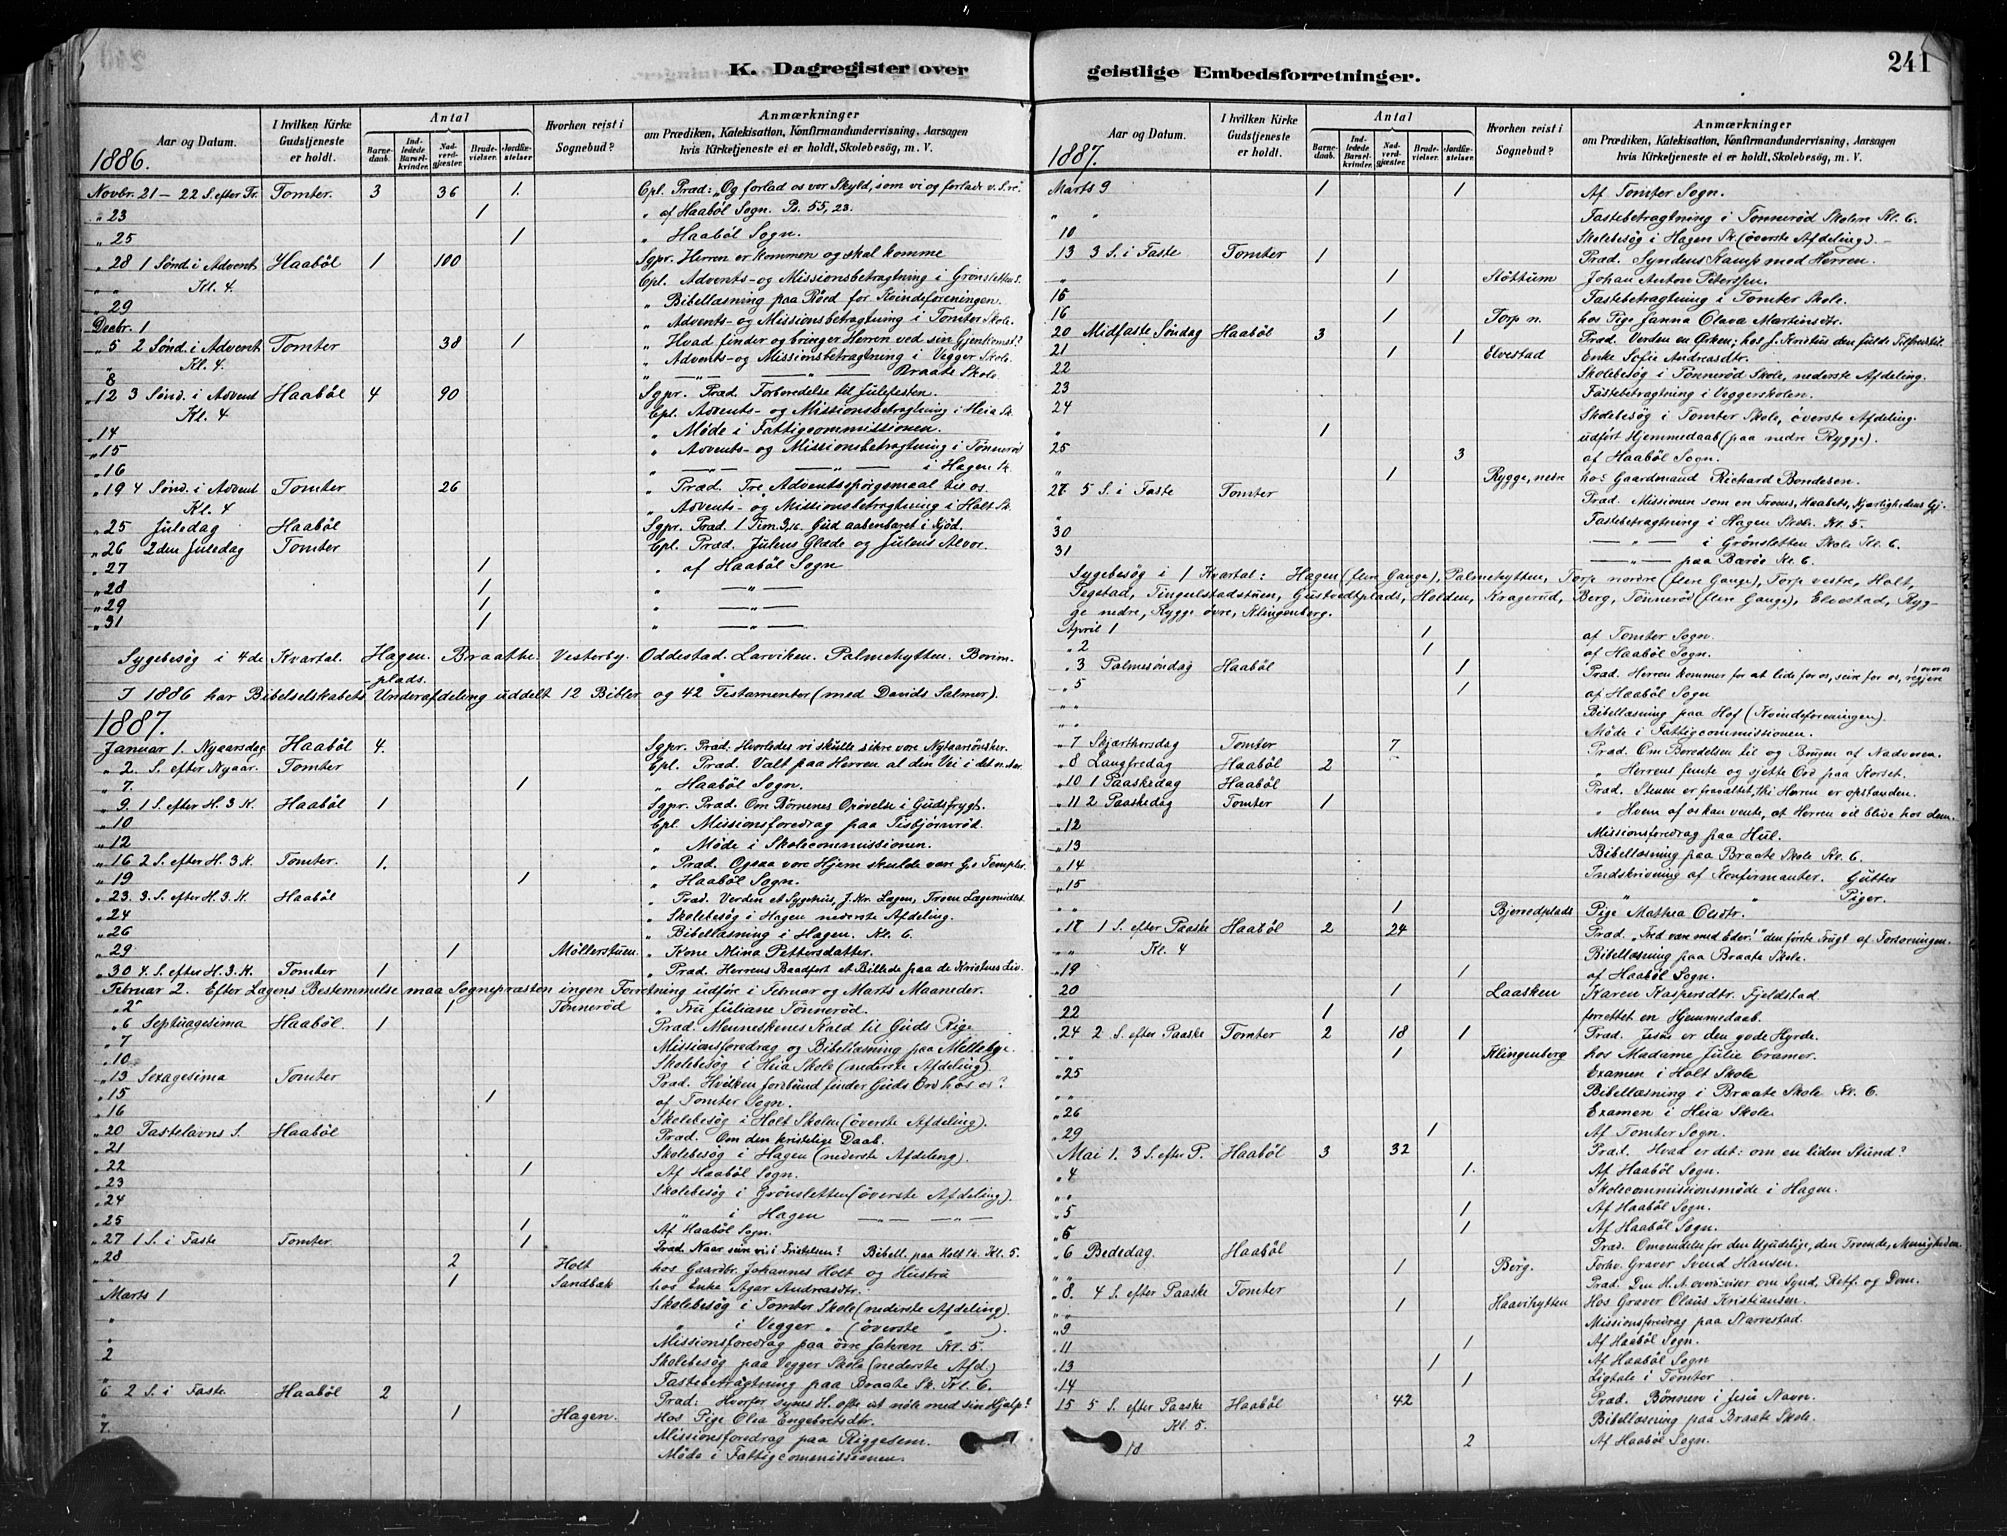 K. Dagregister over
Aar og Datum.
I hvilken Kirke Gudstjeneste er holdt.
Antal
Barnedaab.
Indledede Barselkvinder.
Nadverdgjæster.
Brudevielser.
Jordfæstelser
Hvorhen reist i Sognebud?
Anmærkninger
om Prædiken, Katekisation, Konfirmandundervisning, Aarsagen
hvis Kirketjeneste ei er holdt, Skolebesög, m. V.
1886.
Novbr. 21 - 22 S. efter Tr. Tomter. 3 36 1. Cpl. Præd: "Og forlad os vor Skyld, som vi og forlade v. S.
" 23 1 " af Haaböl Sogn. Ps. 55, 23.
" 25 1 " Haaböl Sogn.
" 28 1 Sønd i Advent Haaböl 1 100 Sgpr. Herren er kommen og skal komme
" " Kl. 4. Cpl. Advents- og Missionsbetragtning i Grønsletten S.
" 29 " Bibellæsning paa Røed for Kvindeforeningen.
Decbr. 1 " Advents- og Missionsbetragtning i Tomter Skole.
" 5 2 Sønd. i Advent Tomter 38 1 " Hvad finder og bringer Herren ved sin Gjenkomst?
" Kl. 4. " Advents- og Missionsbetragtning i Vegger Skole.
" 8 " — " — — " — Braate Skole
" 12 3 Sønd. i Advent Haaböl 4 90 Sgpr. Præd. Forberedelse til Julefesten.
Kl. 4 Cpl. Advents- og Missionsbetragtning i Heia Sk.
" 14 " Møde i Fattigcommissionen.
" 15 " Advents- og Missionsbetragtning i Tønnerød
" 16 " — " — — " — i Hagen Sk.
" 19 4 Sønd. i Advent Tomter 26 " Præd. Tre Adventsspörgsmaal til os.
Kl. 4 " Advents- og Missionsbetragtning i Holt Sk.
" 25 Juledag Haaböl Sgpr. Præd. 1 Tim. 3, 16. Gud aabenbaret i Kjöd.
" 26 2den Juledag Tomter Cpl. Præd. Julens Glæde og Julens Alvor.
" 27 1 " af Haaböl Sogn
" 28 1 " — " —
" 29 1 " — " —
" 31 1 " — " —
Sygebesög i 4de Kvartal. Hagen. Braathe. Vesterby. Oddestad. Larviken. Palmehytten. Borimplads.
I 1886 har Bibelselskabets Underafdeling uddelt 12 Bibler og 42 Testamenter (med Davids Salmer).
1887.
Januar 1. Nyaarsdag Haaböl 4. Sgpr. Præd. Hvorledes vi skulle sikre vore Nytaarsönsker.
" 2. S. efter Nyaar. Tomter Cpl. Præd. Valt paa Herren al den Vei i det nye Aar
" 7. 1 " Haaböl Sogn.
" 9. 1 S. efter H. 3 K. Haaböl 1 Sgpr. Præd. Om Børnenes Opövelse i Gudsfrygt.
" 10 Cpl. Missionsforedrag paa Tisbjørnrød.
" 12 " Møde i Skolecommissionen.
" 16 2 S. efter H. 3 K. Tomter. 1. " Præd. Ogsaa vore Hjem skulde være G. Templer
" 19 1 " Haaböl Sogn.
" 23. 3. S. efter H. 3. K. Haaböl " Præd. Verden et Sygehus, J. Kr. Lægen, Troen Lægemidlet
" 24 " Skolebesög i Hagen nederste Afdeling.
" 26 " Bibellæsning i Hagen. Kl. 6.
" 29 1 Möllerstuen " Kone Mina Pettersdatter
" 30 4. S. efter H. 3. K. Tomter 1 " Præd. Herrens Baadfart et Billede paa de Kristnes Liv.
Februar 2. Efter Lægens Bestemmelse maa Sognepræsten ingen Forretning udføre i Februar og Marts Maaneder.
" 2 1 Tønnerød " Fru Juliane Tønnerød.
" 6 Septuagesima Haaböl. 1 Præd. Menneskenes Kald til Guds Rige
" 7 Missionsforedrag og Bibellæsning paa Mellebye.
" 10 Skolebesög i Heia Skole (nederste Afdeling).
" 13 Sexagesima Tomter Præd. Hvilken Jordbund finder Guds Ord hos os?
" 15 1 af Tomter Sogn.
" 16 Skolebesög i Holt Skolen (överste Afdeling).
" 20 Fastelavns S. Haaböl Præd. Om den kristelige Daab.
" 21 Skolebesög i Hagen (nederste Afdeling).
" 22 1 Af Haaböl Sogn.
" 23 Skolebesög i Grønsletten (överste Afdeling).
" 24 " i Hagen — " — — " —
" 25 1 Af Haaböl Sogn.
" 27 1 S. i Faste Tomter. 1 Præd. Naar seire vi i Fristelsen? Bibell. paa Holt Sk. Kl. 5.
" 28 2 Holt hos Gaardbr. Johannes Holt og Hustru
" " 1 Sandbæk hos Enke Agar Andreasdtr.
Marts 1 Skolebesög i Tomter Skole (nederste Afdeling).
" " i Vegger " (överste " ).
" Missionsforedrag paa øvre Jahren Kl. 5.
2 Skolebesög paa Vegger Skole (nederste Afd.)
" Fastebetragtning paa Braate Sk. Kl. 6.
6 2 S. i Faste Haaböl 2 Præd: Hvorfor synes H. ofte at nöle med sin Hjælp?
" 1 Hagen. Hos Pige Olea Engebretsdtr.
7. Missionsforedrag paa Riggesem.
Møde i Fattigcommissionen.
geistlige Embedsforretninger.
241
Aar og Datum.
I hvilken Kirke Gudstjeneste er holdt.
Antal
Barnedaab.
Indledede Barselkvinder.
Nadverdgjæster.
Brudevielser.
Jordfæstelser.
Hvorhen reist i Sognebud?
Anmærkninger
om Prædiken, Katekisation, Konfirmandundervisning, Aarsagen
hvis Kirketjeneste ei er holdt, Skolebesög, m. V.
1887.
Marts 9 1 1 Af Tomter Sogn.
" " Fastebetragtning i Tønnerød Skolen Kl. 6.
10 Skolebesög i Hagen Sk. (överste Afdeling).
13 3 S. i Faste Tomter 1 Præd. Syndens Kamp mod Herren.
" 1 Støttum Johan Anton Peterssen.
15 Fastebetragtning i Tomter Skole.
16 1 Torp n. hos Pige Janna Olava Martinsdtr.
20 Midfaste Söndag Haaböl 3 1 Præd. Verden en Ørken; hos J. Kristus den fulde Tilfredsstil.
21 1 Elvestad Enke Sofie Andreasdtr.
22 Skolebesög i Tønnerød Skole, nederste Afdeling.
23 Fastebetragtning i Veggerskolen.
24 Skolebesög i Tomter Skole, överste Afdeling.
" 1 udført Hjemmedaab (paa nedre Rygge).
25 3 af Haaböl Sogn.
" 1 Rygge, nedre hos Gaardmand Richard Bondesen.
27 5 S. i Faste Tomter Præd. Missionen som en Troens, Haabets, Kjærlighedens Gj.
" Fastebetragtning i Hagen Skole. Kl. 5.
30 — " — i Grønsletten Skole Kl. 6.
31 — " — paa Barøe Kl. 6.
Sygebesög i 1 Kvartal: Hagen (flere Gange), Palmehytten, Torp nordre (flere Gange), Torp vestre, Holt,
Tegstad, Tingulstadstuen, Gustvedtplads, Holden, Kragerud, Berg, Tønnerød (flere Gange), Elvestad, Rygge nedre, Rygge övre, Klingenberg.
April 1 1 af Tomter Sogn.
" 2 1 af Haaböl Sogn.
" 3 Palmesöndag Haaböl 1 Præd. Herren kommer for at lide for os, seire for os, regjere i over os
" 5 1 af Haaböl Sogn
" " Bibellæsning paa Hof (Kvindeforeningen).
" " Møde i Fattigcommissionen.
" 7 Skjærthorsdag Tomter 7 Præd. Om Beredelsen til og Brugen af Nadveren.
" 8 Langfredag Haaböl 2 " Herrens femte og sjette Ord paa Korset.
" 10 1 Paaskedag Haaböl Præd. Stenen er fravæltet, thi Herren er opstanden.
" 11 2 Paaskedag Tomter 1 " Hvem af os kan vente, at Herren vil blive hos dem.
" 12 Missionsforedrag paa Hul.
" 13 Bibellæsning paa Braate Skole Kl. 6.
" 14 Indskrivning af Konfirmanter. Gutter
" 15 " " Piger.
" " 1 Bjerredplads Pige Mathea Olsdtr.
" 17 1 S. efter Paaske Haaböl 2 24 Præd. "Fred være med Eder!" den förste Frugt af Forsoningen.
" " Kl. 4 Bibellæsning paa Braate Skole.
" 19 1 af Haaböl Sogn.
" 20 1 Laasken Karen Kaspersdtr. Fjeldstad.
" 22 1 forrettet en Hjemmedaab.
" 24 2 S. efter Paaske Tomter 2 18 1 Præd. Jesus er den gode Hyrde.
" " 1 Klingenberg hos Madame Julie Cramer.
" 25 Examen i Holt Skole
" " Bibellæsning i Braate Skole Kl. 6.
" 26 Examen i Heia Skole.
" 29 1 Af Tomter Sogn.
Mai 1. 3 S. efter P. Haaböl 3 32 Præd. Hvad er det: om en liden Stund?
" 4 1. Af Haaböl Sogn.
" " Skolecommissionsmöde i Hagen.
" 5 1 Af Haaböl Sogn.
" 6 1 Af Haaböl Sogn.
" 6 Bededag. Haaböl Præd. Omvendelse for den Ugudelige, den Troende, Menigheden
" " 1 Berg. Forhv. Graver Svend Hansen.
" 8. 4 S. efter Paaske Tomter Præd. Den H. A overbeviser om Synd, Retf. og Dom.
" " 1 Haavihytten Hos Graver Claus Kristiansen.
" 9 Missionsforedrag paa Narvestad.
" 11 1 Af Haaböl Sogn.
" 13 1 Af Haaböl Sogn
" 14 1 Ligtale i Tomter
15 5 S. efter Paaske Haaböl 42 Præd. Bönnen i Jesu Navn.
Kl. 5. Bibellæsning paa Braate Skole.
18 2 Af Haaböl Sogn.